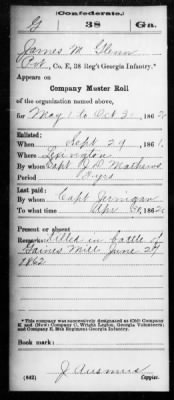 (Confederate.)
G 38 Ga.
James M. Glenn
Pvt., Co. E, 38 Reg't Georgia Infantry.*
Appears on
Company Muster Roll
of the organization named above,
for May 1 to Oct 31, 1862.
Enlisted:
When Sept 29, 1861.
Where Lexington
By whom Capt Mathews
Period 3 yrs
Last paid:
By whom Capt Jernigan
To what time Apr 1862
Present or absent
Remarks: Killed in battle of
Gaines Mill June 27
1862
*This company was successively designated as
and (New) Company C, Wright Legion, Georgia Volunteers;
and Company E, 38th Regiment Georgia Infantry.
Book mark:
J Ausmus
(642) Copyist.